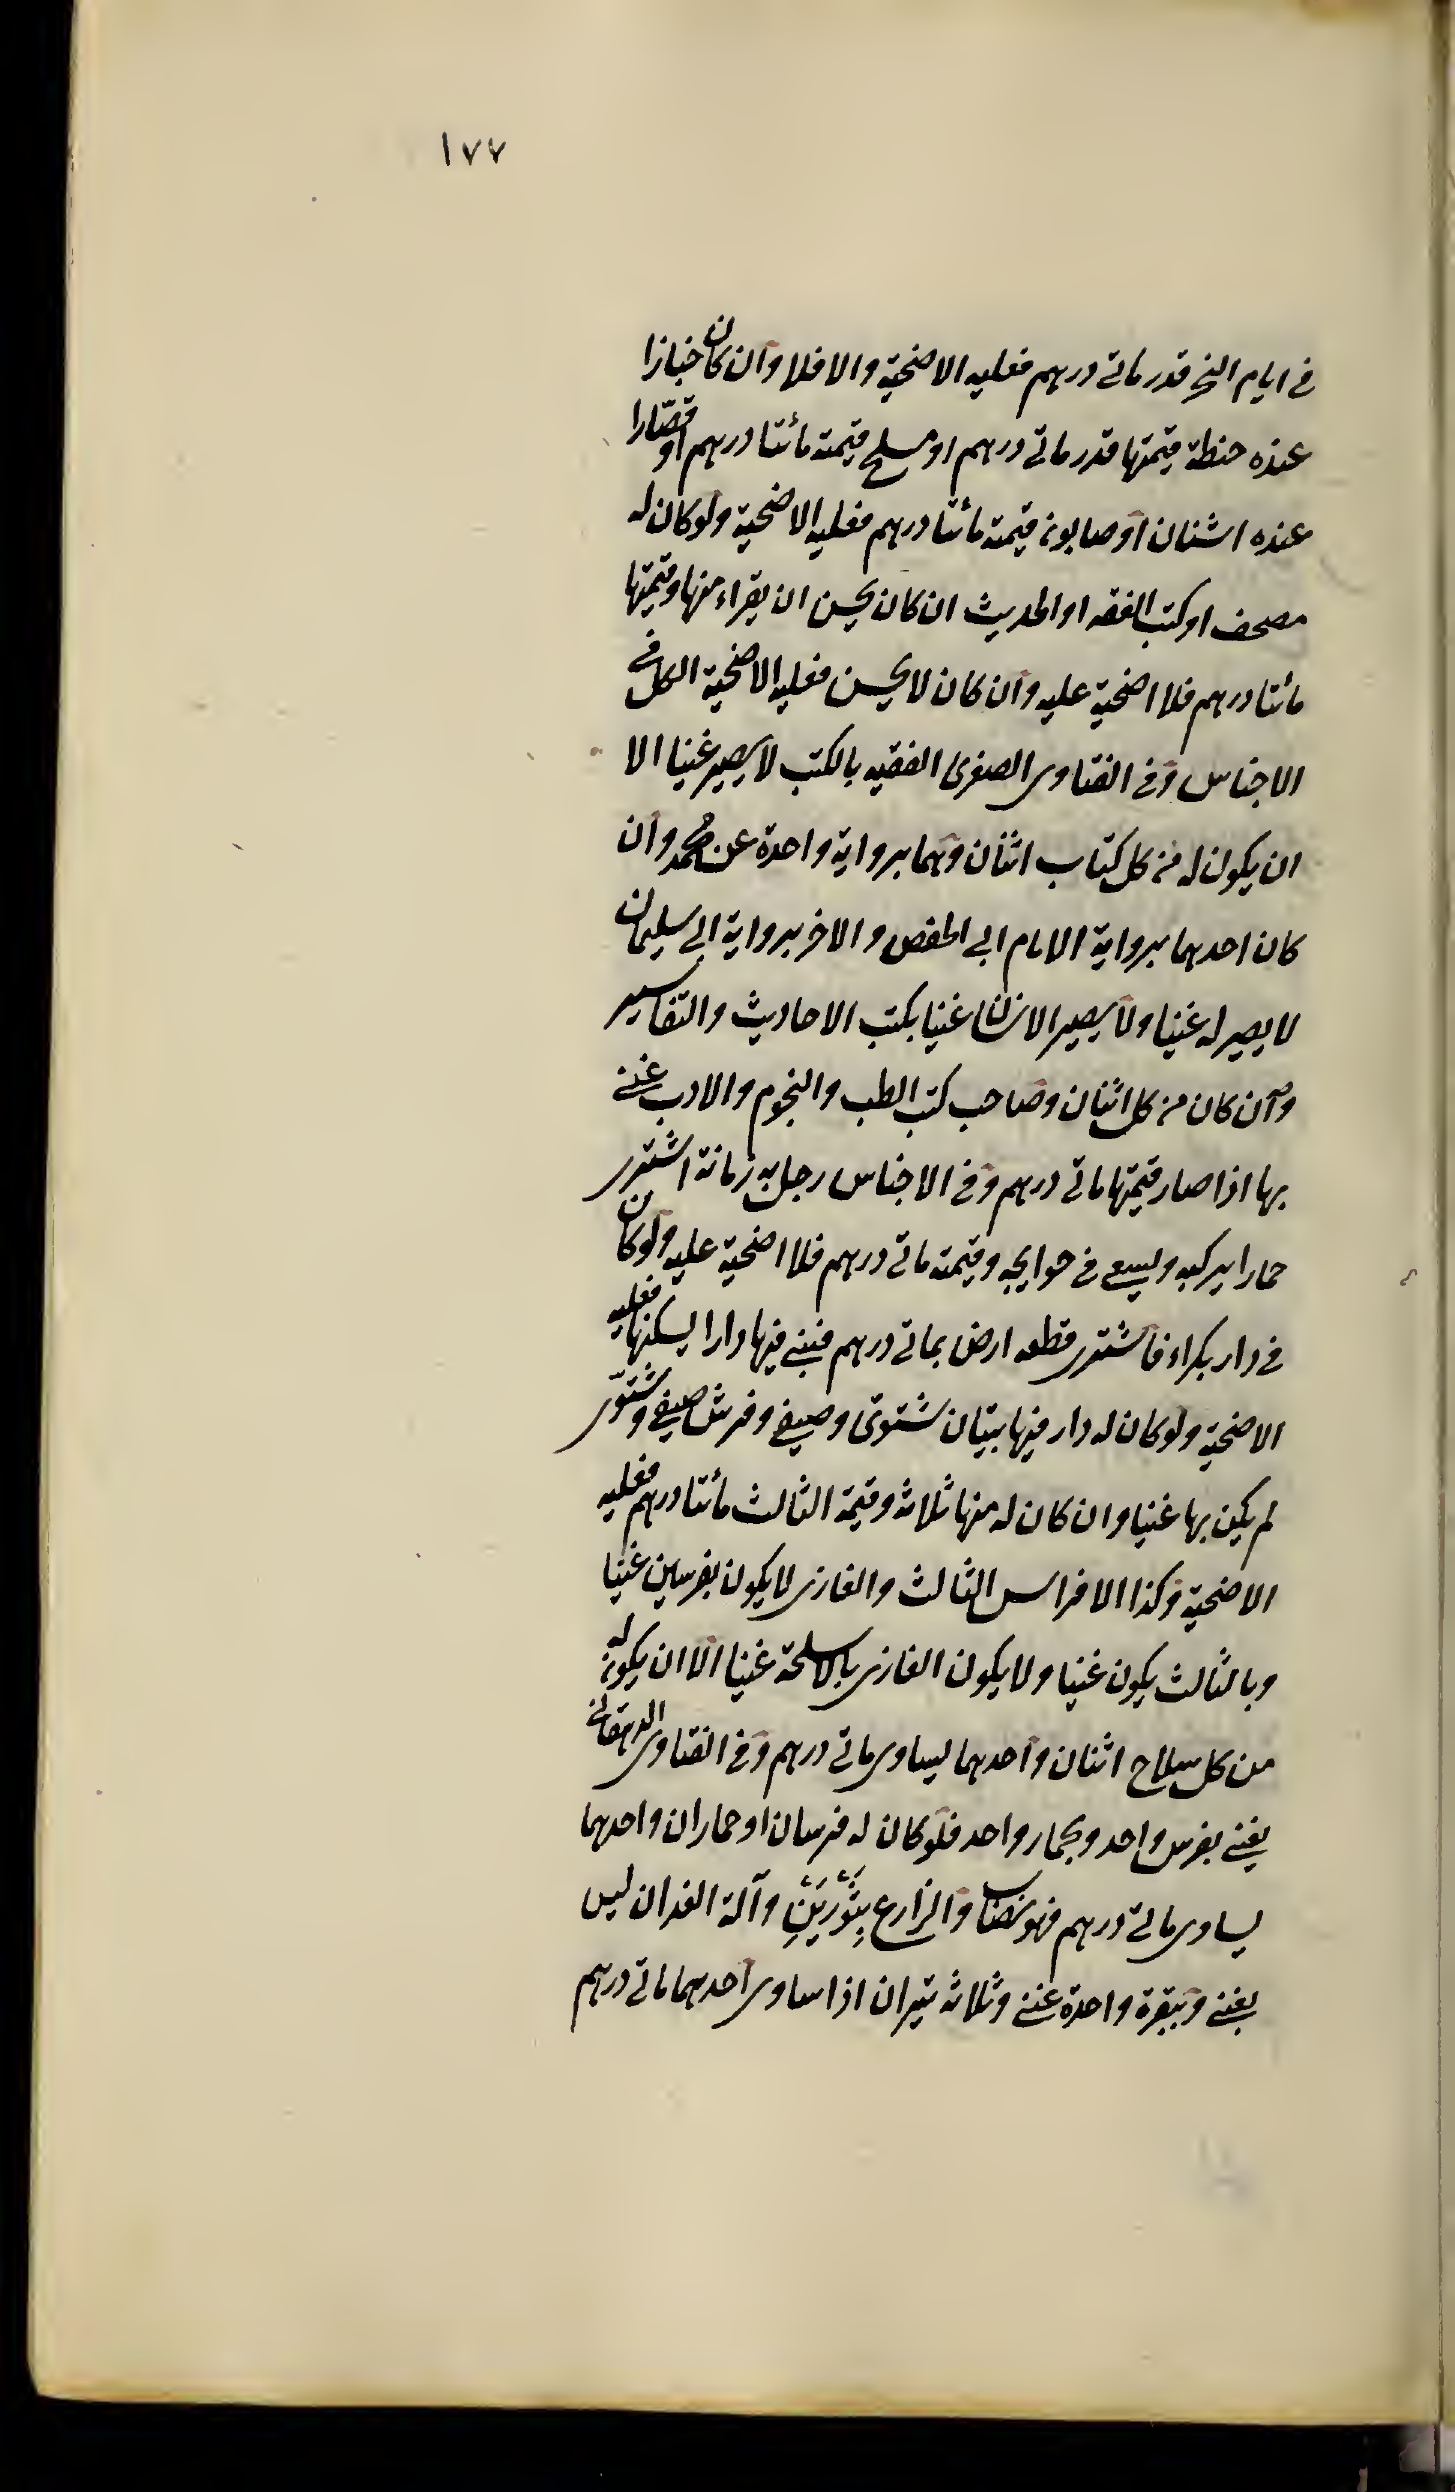 ١٧٧
في ايام النحر قدر مائتي درهم فعليه الاضحية والا فلا وان كان خبازا
عنده حنطة قيمتها قدر مائتي درهم او مسلح قيمته مائتا درهم او قصّارا
عنده اشنان او صابون قيمته مائتا درهم فعليه الاضحية ولو كان له
مصحف او كتب الفقه او الحديث ان كان يحسن ان يقراء منها وقيمتها
مائتا درهم فلا اضحية عليه وان كان لا يحسن فعليه الاضحية الكل في
الاجناس وفي الفتاوى الصغرى الفقيه بالكتب لا يصير غنيا الا
ان يكون له من كل كتاب اثنان وهما برواية واحدة عن محمد وان
كان احدهما برواية الامام ابي الحفص والاخر برواية ابي سليمان
لا يصير له غنيا ولا يصير الانسان غنيا بكتب الاحاديث والتفاسير
وان كان من كل اثنان وصاحب كتب الطب والنجوم والادب غني
بها اذا صار قيمتها مائتي درهم وفي الاجناس رجل به زمانة اشترى
حمارا يركبه ويسعى في حوايجه وقيمته مائتي درهم فلا اضحية عليه ولو كان
في دار بكراء فاشترى قطعه ارض بمائتي درهم فبنى فيها دارا يسكنها فعليه
الاضحية ولو كان له دار فيها بيتان شتوىّ وصيفي وفرش صيفي وشتوّى
لم يكن بها غنيا وان كان له منها ثلاثه وقيمة الثالث مائتا درهم فعليه
الاضحية وكذا الافراس الثالث والغازى لا يكون بفرسين غنيا
وبالثالث يكون غنيا ولا يكون الغازى بالاسلحة غنيا الا ان يكون له
من كل سلاح اثنان واحدهما يساوى مائتي درهم وفي الفتاوى الدهقان
بغني بفرس واحد وبحمار واحد فلو كان له فرسان او حماران واحدهما
يساوى مائتي درهم فهو نصاب والزارع بِثَوْرَيْنِ وآلة الفدان ليس
بغني وببقرة واحدة غني وثلاثه ثيران اذا ساوى احدهما مائتي درهم